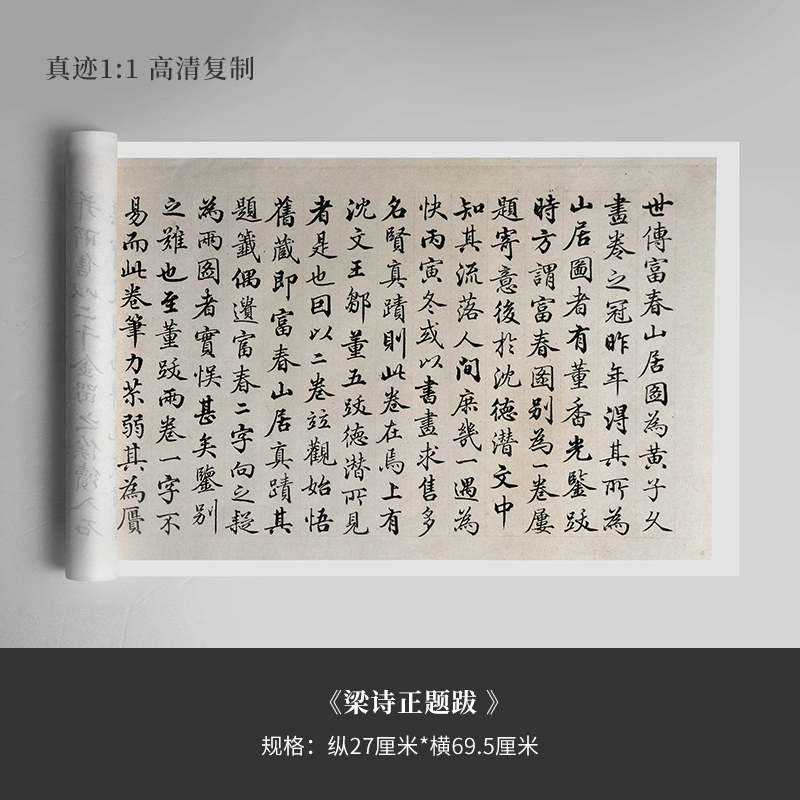 真迹1:1 高清复制
世傳富春山居圖為黃子久
畫卷之冠昨年得其所為
山居圖者有董香光鑒跋
時方謂富春圖别為一卷屢
題寄意後於沈德潛文中
知其流落人間庶幾一遇為
快丙寅冬或以書畫求售多
名賢真蹟則此卷在焉上有
沈文王鄒董五跋德潛所見
者是也因以二卷竝觀始悟
舊蔵即富春山居真蹟其
題籤偶遺富春二字向之疑
為兩圖者實悮甚矣鑒别
之難也至董跋兩卷一字不
易而此卷筆力苶弱其為贗
《梁诗正题跋 》
规格：纵27厘米*横69.5厘米